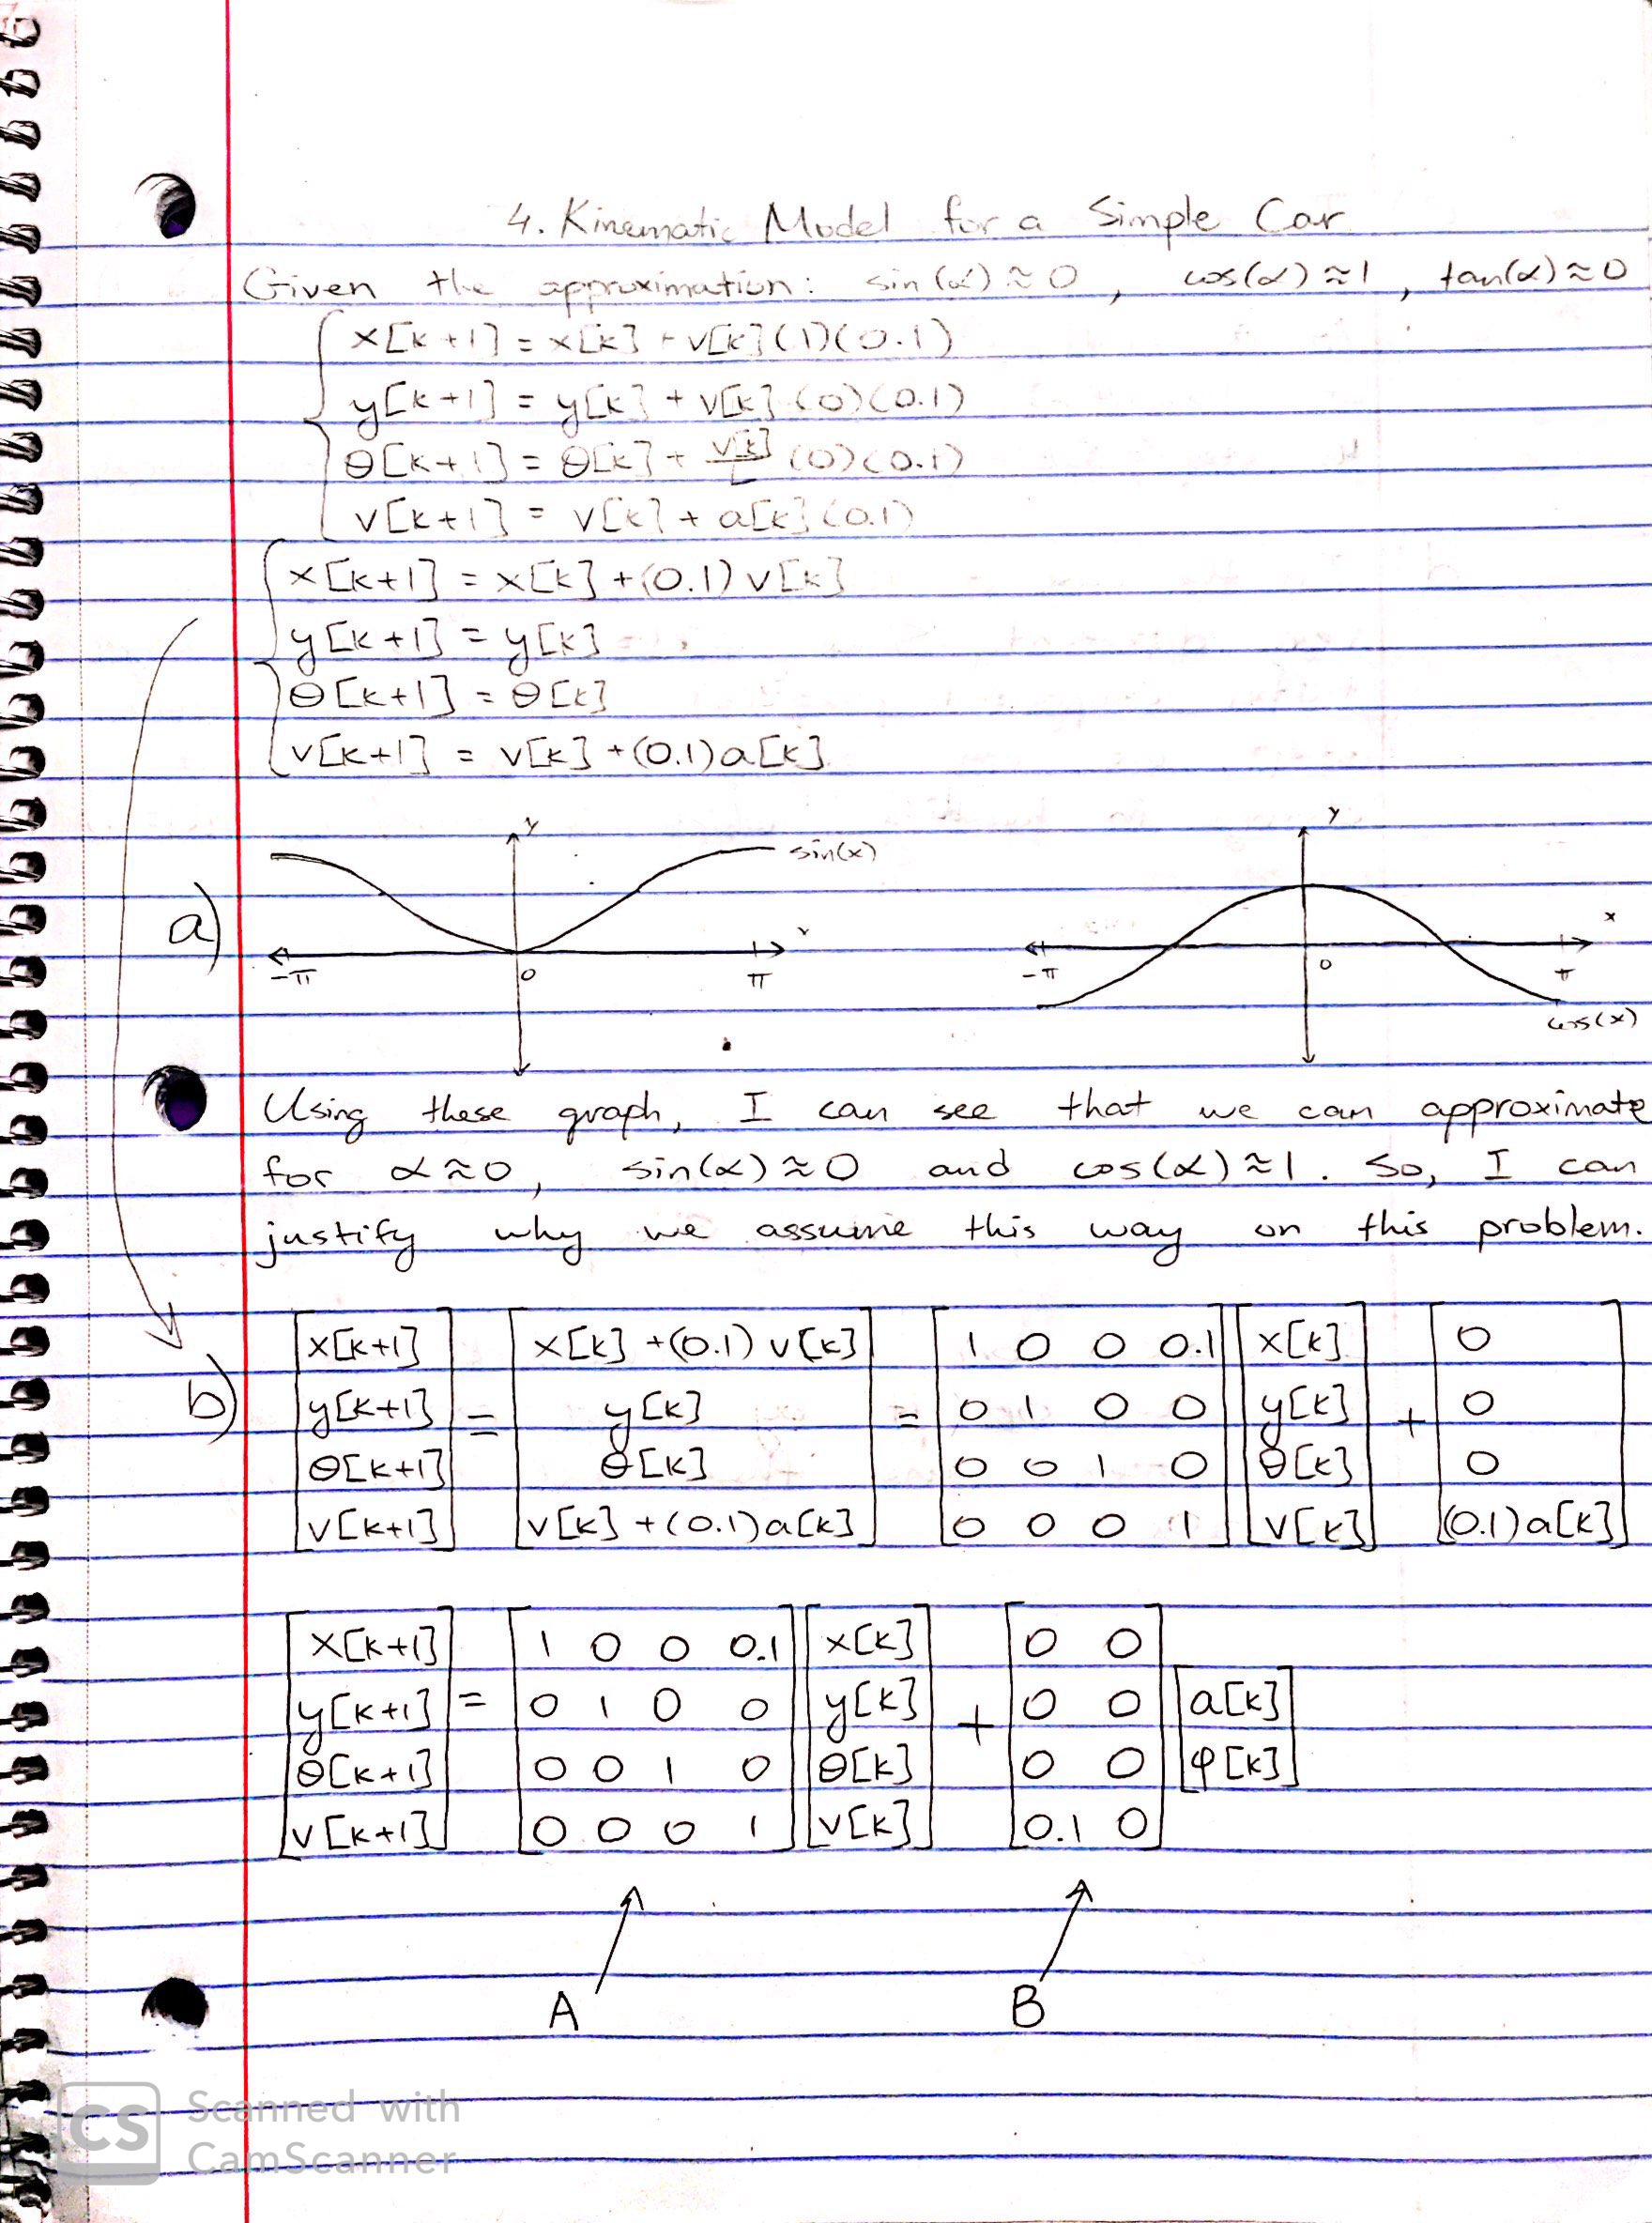 4. Kinematic Model for a Simple Car
Given the approximation: sin(α) ≈ 0, cos(α) ≈ 1, tan(α) ≈ 0
x[k+1] = x[k] + v[k](1)(0.1)
y[k+1] = y[k] + v[k](0)(0.1)
θ[k+1] = θ[k] + v[k]/L (0)(0.1)
v[k+1] = v[k] + a[k](0.1)
x[k+1] = x[k] + (0.1) v[k]
y[k+1] = y[k]
θ[k+1] = θ[k]
v[k+1] = v[k] + (0.1) a[k]
a)
y sin(x) x -π 0 π
y x -π 0 π cos(x)
Using these graph, I can see that we can approximate
for α ≈ 0, sin(α) ≈ 0 and cos(α) ≈ 1. So, I can
justify why we assume this way on this problem.
b)
[x[k+1]] [x[k] + (0.1) v[k]] [1 0 0 0.1] [x[k]] [0]
[y[k+1]] = [y[k]] = [0 1 0 0] [y[k]] + [0]
[θ[k+1]] [θ[k]] [0 0 1 0] [θ[k]] [0]
[v[k+1]] [v[k] + (0.1) a[k]] [0 0 0 1] [v[k]] [(0.1) a[k]]
[x[k+1]] [1 0 0 0.1] [x[k]] [0 0]
[y[k+1]] = [0 1 0 0] [y[k]] + [0 0] [a[k]]
[θ[k+1]] [0 0 1 0] [θ[k]] [0 0] [φ[k]]
[v[k+1]] [0 0 0 1] [v[k]] [0.1 0]
A B
CS Scanned with
CamScanner